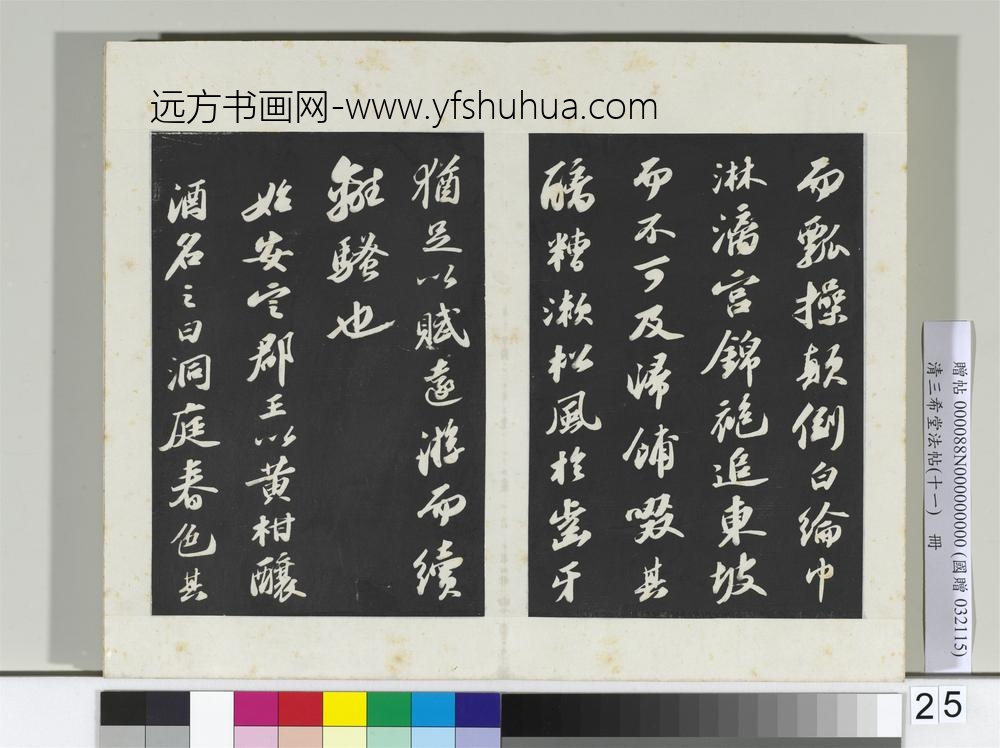 远方书画网-www.yfshuhua.com
而瓢操顛倒白綸巾
淋漓宮錦袍追東坡
而不可及歸餔啜其
醨糟漱松風於齒牙
猶足以賦遠游而續
離騷也
始安定郡王以黄柑釀
酒名之曰洞庭春色其
贈帖 000088N000000000 (國贈 032115)
清三希堂法帖(十一) 冊
25